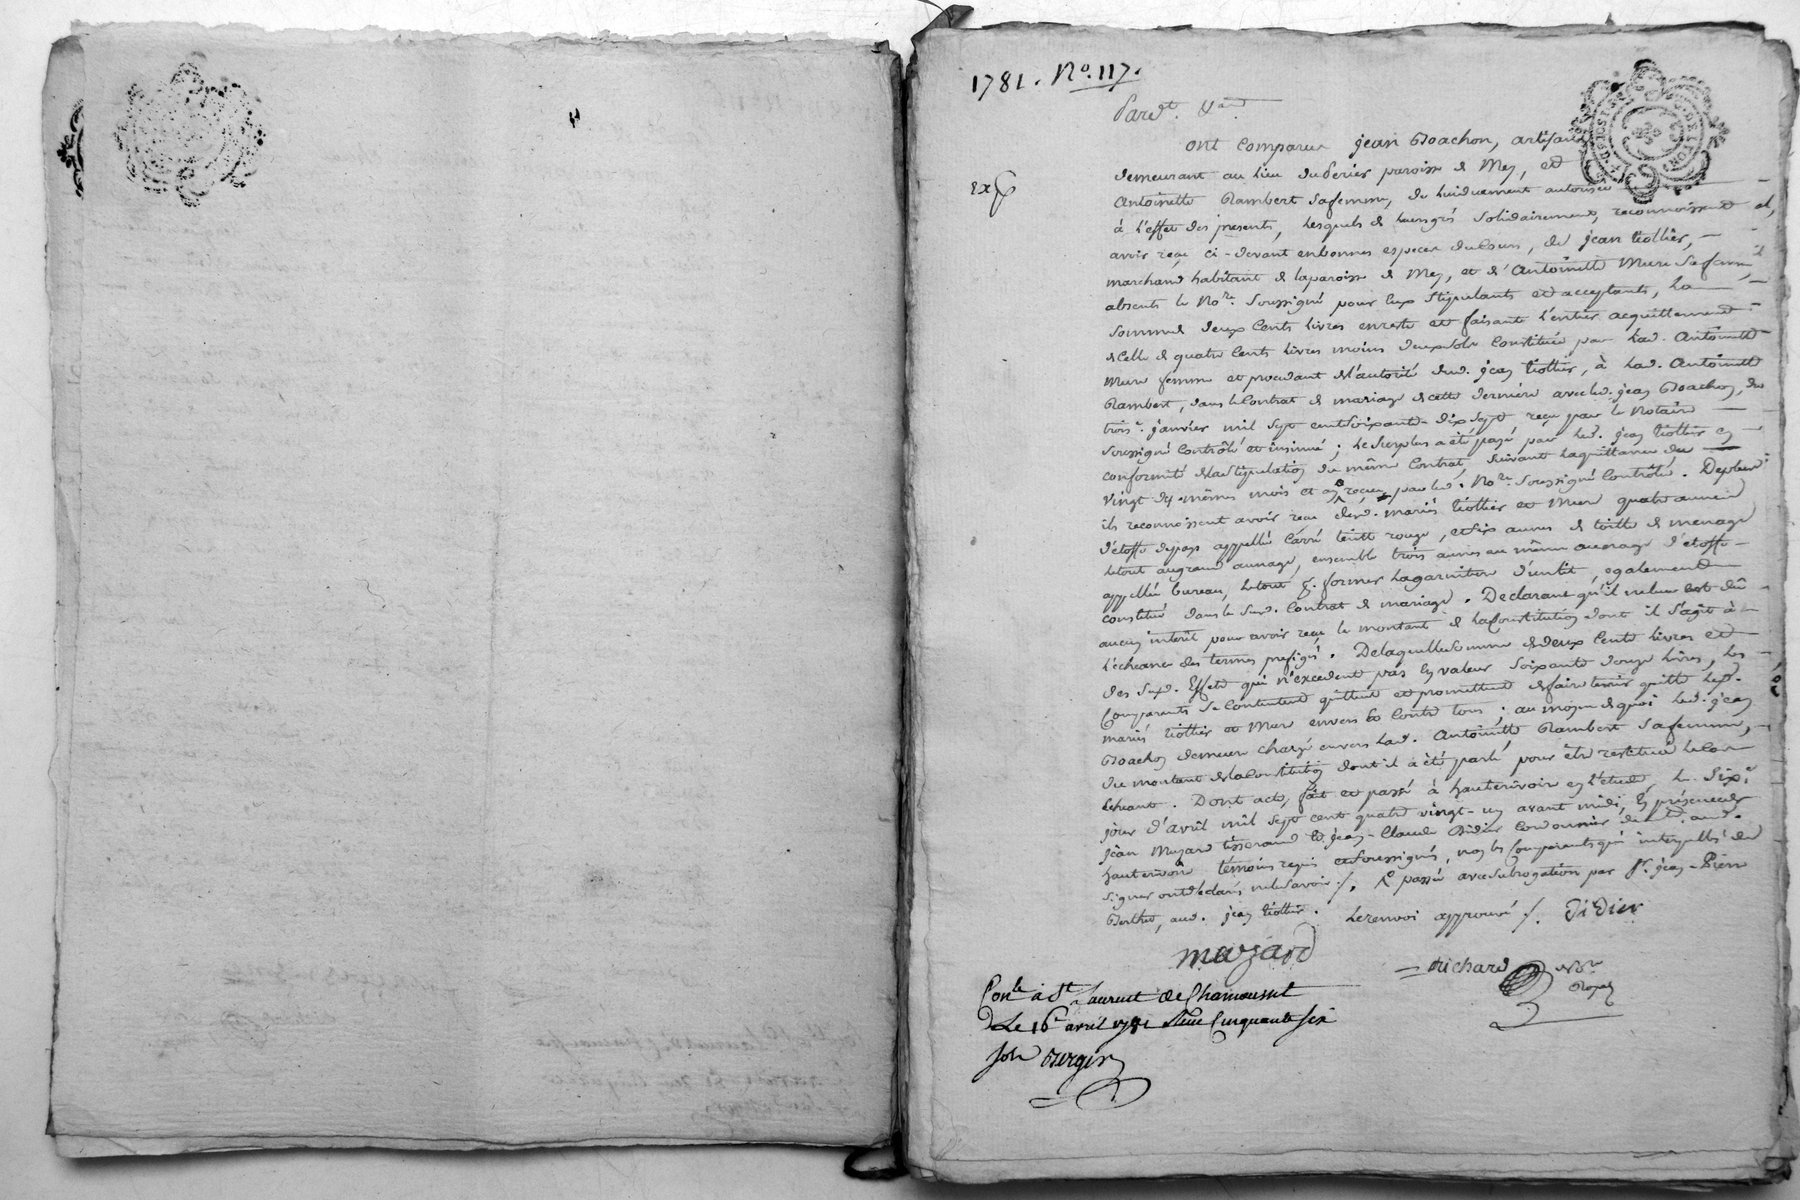 1781. No. 117.
Pardt.
Ex
ont comparu jean Boachon, artisan
demeurant au lieu du Perier paroisse de Mey, et
Antoinette Rambert safemme, de lui duement autorisée
à l'effet des presents, lesquels de leurs grés solidairement, reconnoissent
avoir reçu ci-devant en bonnes especes du Cours, de jean tiollier,
marchand habitant de la paroisse de Mey, et d'Antoinette Mure safemme
absents le Nore. Soussigné pour Eux stipulants et acceptants, la
somme de deux Cents livres en reste et faisant l'entier acquittement
de celle de quatre Cents livres moins deux sols Constituée par lad. Antoinette
Mure femme et procedant de l'autorité dud. jean tiollier, à lad. Antoinette
Rambert, dans le Contrat de mariage de cette derniere avec led. jean Boachon, du
trois. janvier mil sept cent soixante-dix sept reçu par le Notaire
Soussigné Controlé et insinué; le surplus a été payé par led. jean tiollier en
conformité de la stipulation du même Contrat, suivant la quittance du
vingt des mêmes mois et an reçue par led. Nore. Soussigné Controlé. De plus
ils reconnoissent avoir reçu desd. mariés tiollier et Mure quatre aunes
d'étoffe de pays appellée Carré teint rouge, et six aunes de toille de menage
le tout au grand aunage, ensemble trois aunes au même aunage d'étoffe
appellée bureau, le tout pr. former la garniture d'un lit, egalement
constitué dans le susd. Contrat de mariage. Declarant qu'il ne leur est dû
aucun interêt pour avoir reçu le montant de la Constitution dont il s'agit à
l'echeance des termes prefigés. De laquelle somme de deux Cents livres et
des susd. Effets qui n'excedent pas en valeur soixante douze livres, les
Comparants se Contentent quittent et promettent de faire tenir quitte lesd.
mariés tiollier et Mure envers et Contre tous; au moyen de quoi led. jean
Boachon demeure chargé envers lad. Antoinette Rambert safemme,
du montant de la Constitution dont il a été parlé pour être restitué le Cas
echeant. Dont acte, fait et passé à hauterivoire en l'étude, le six.
jour d'avril mil sept cent quatre vingt-un avant midi, En présence de
jean Mazard tisserand et jean-Claude Didier Cordonnier dud.
hauterivoire temoins requis et soussignés, non les Comparants qui interpellés de
signer ont declaré ne le savoir ./. passé avec subrogation par sr. jean-Pierre
Berthet, aud. jean tiollier. le renvoi approuvé ./. Didier
mazard
Richard Nore
Royal
Conlé à St Laurent de Chamousset
Le 16e avril 1781 Reçu Cinquante six
sols Bergir